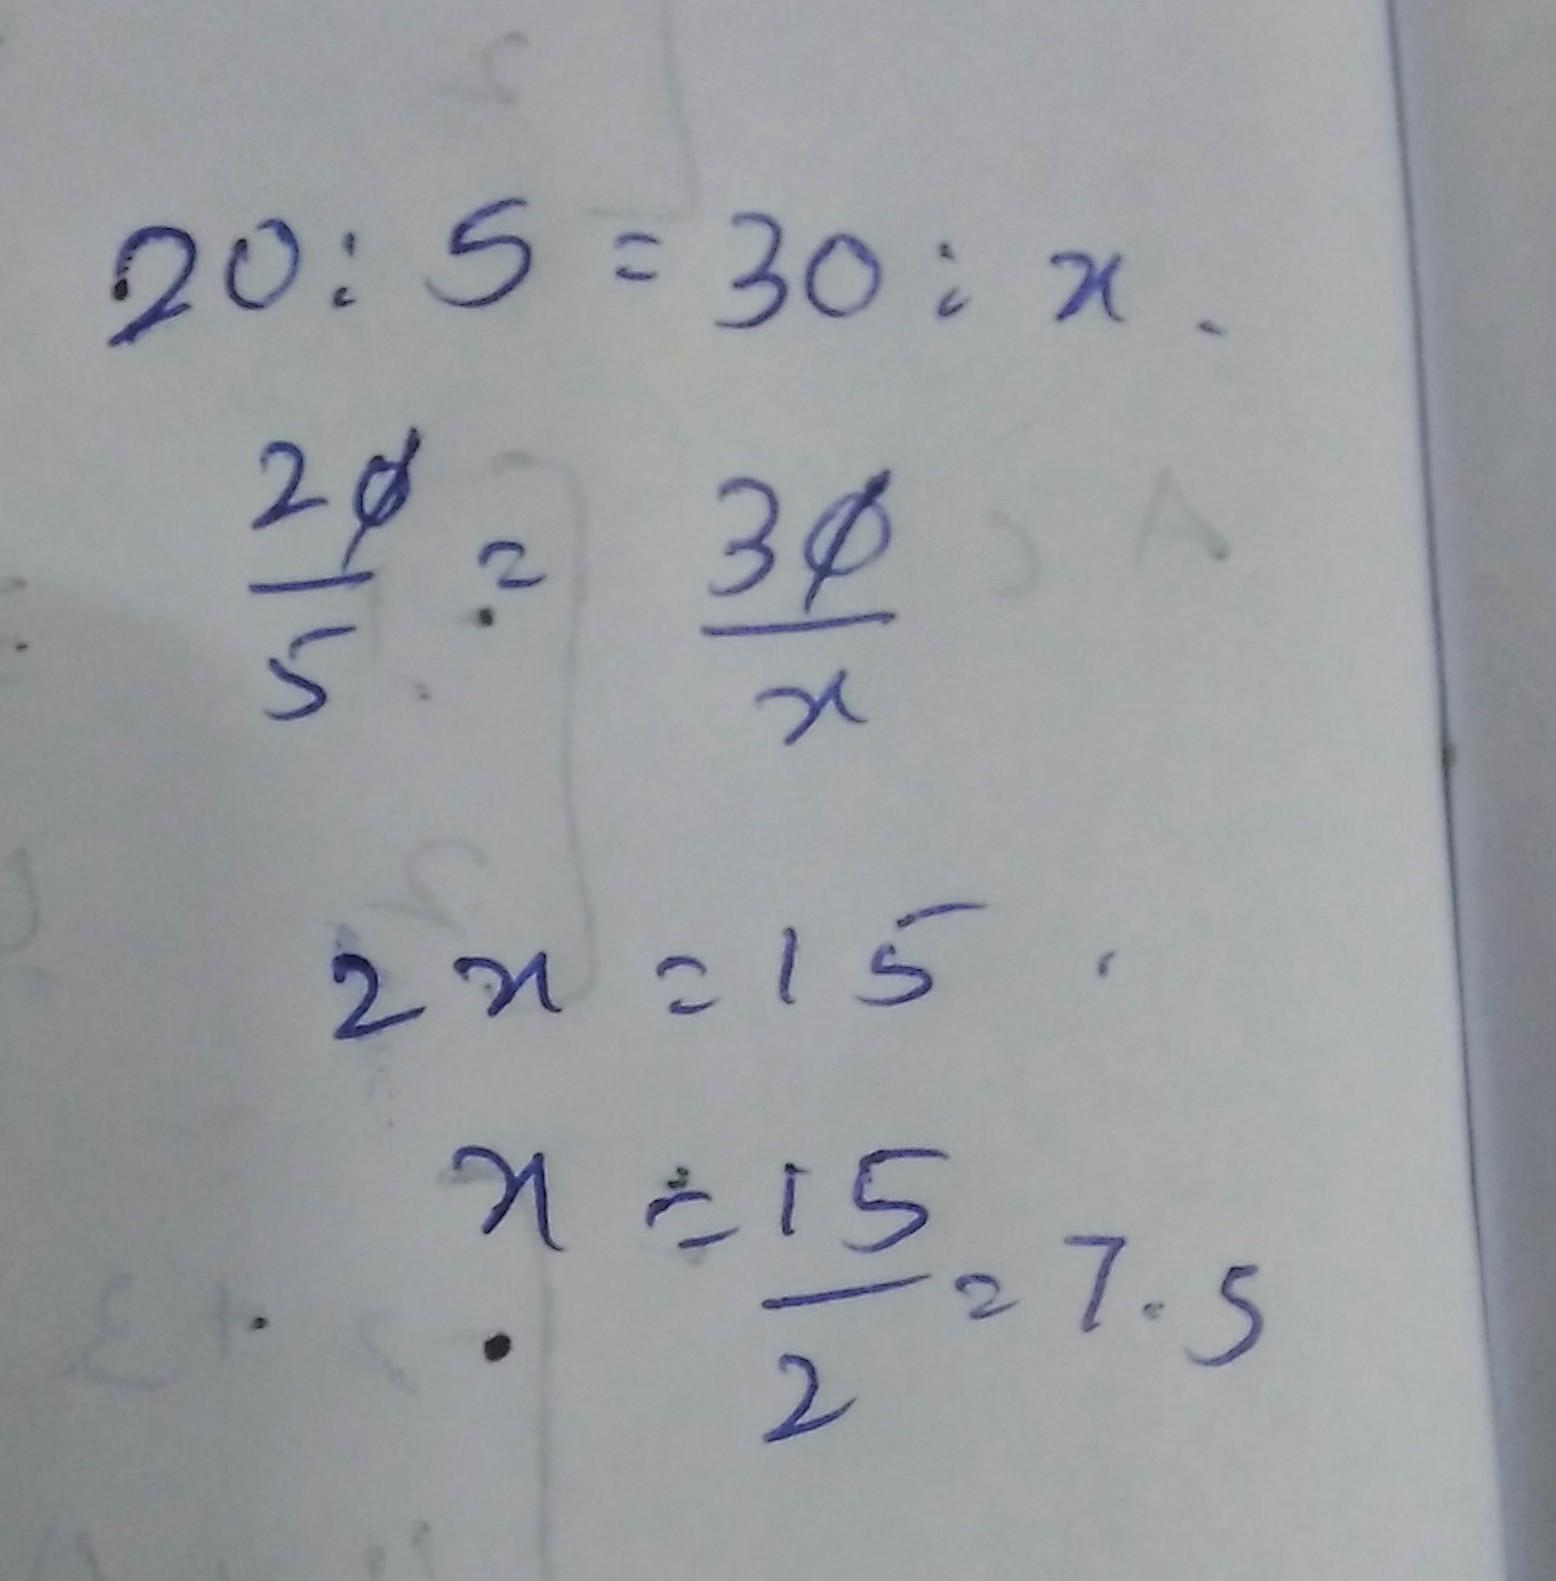 20 : 5 = 30 : x.
20/5 = 30/x
2x = 15
x = 15/2 = 7.5